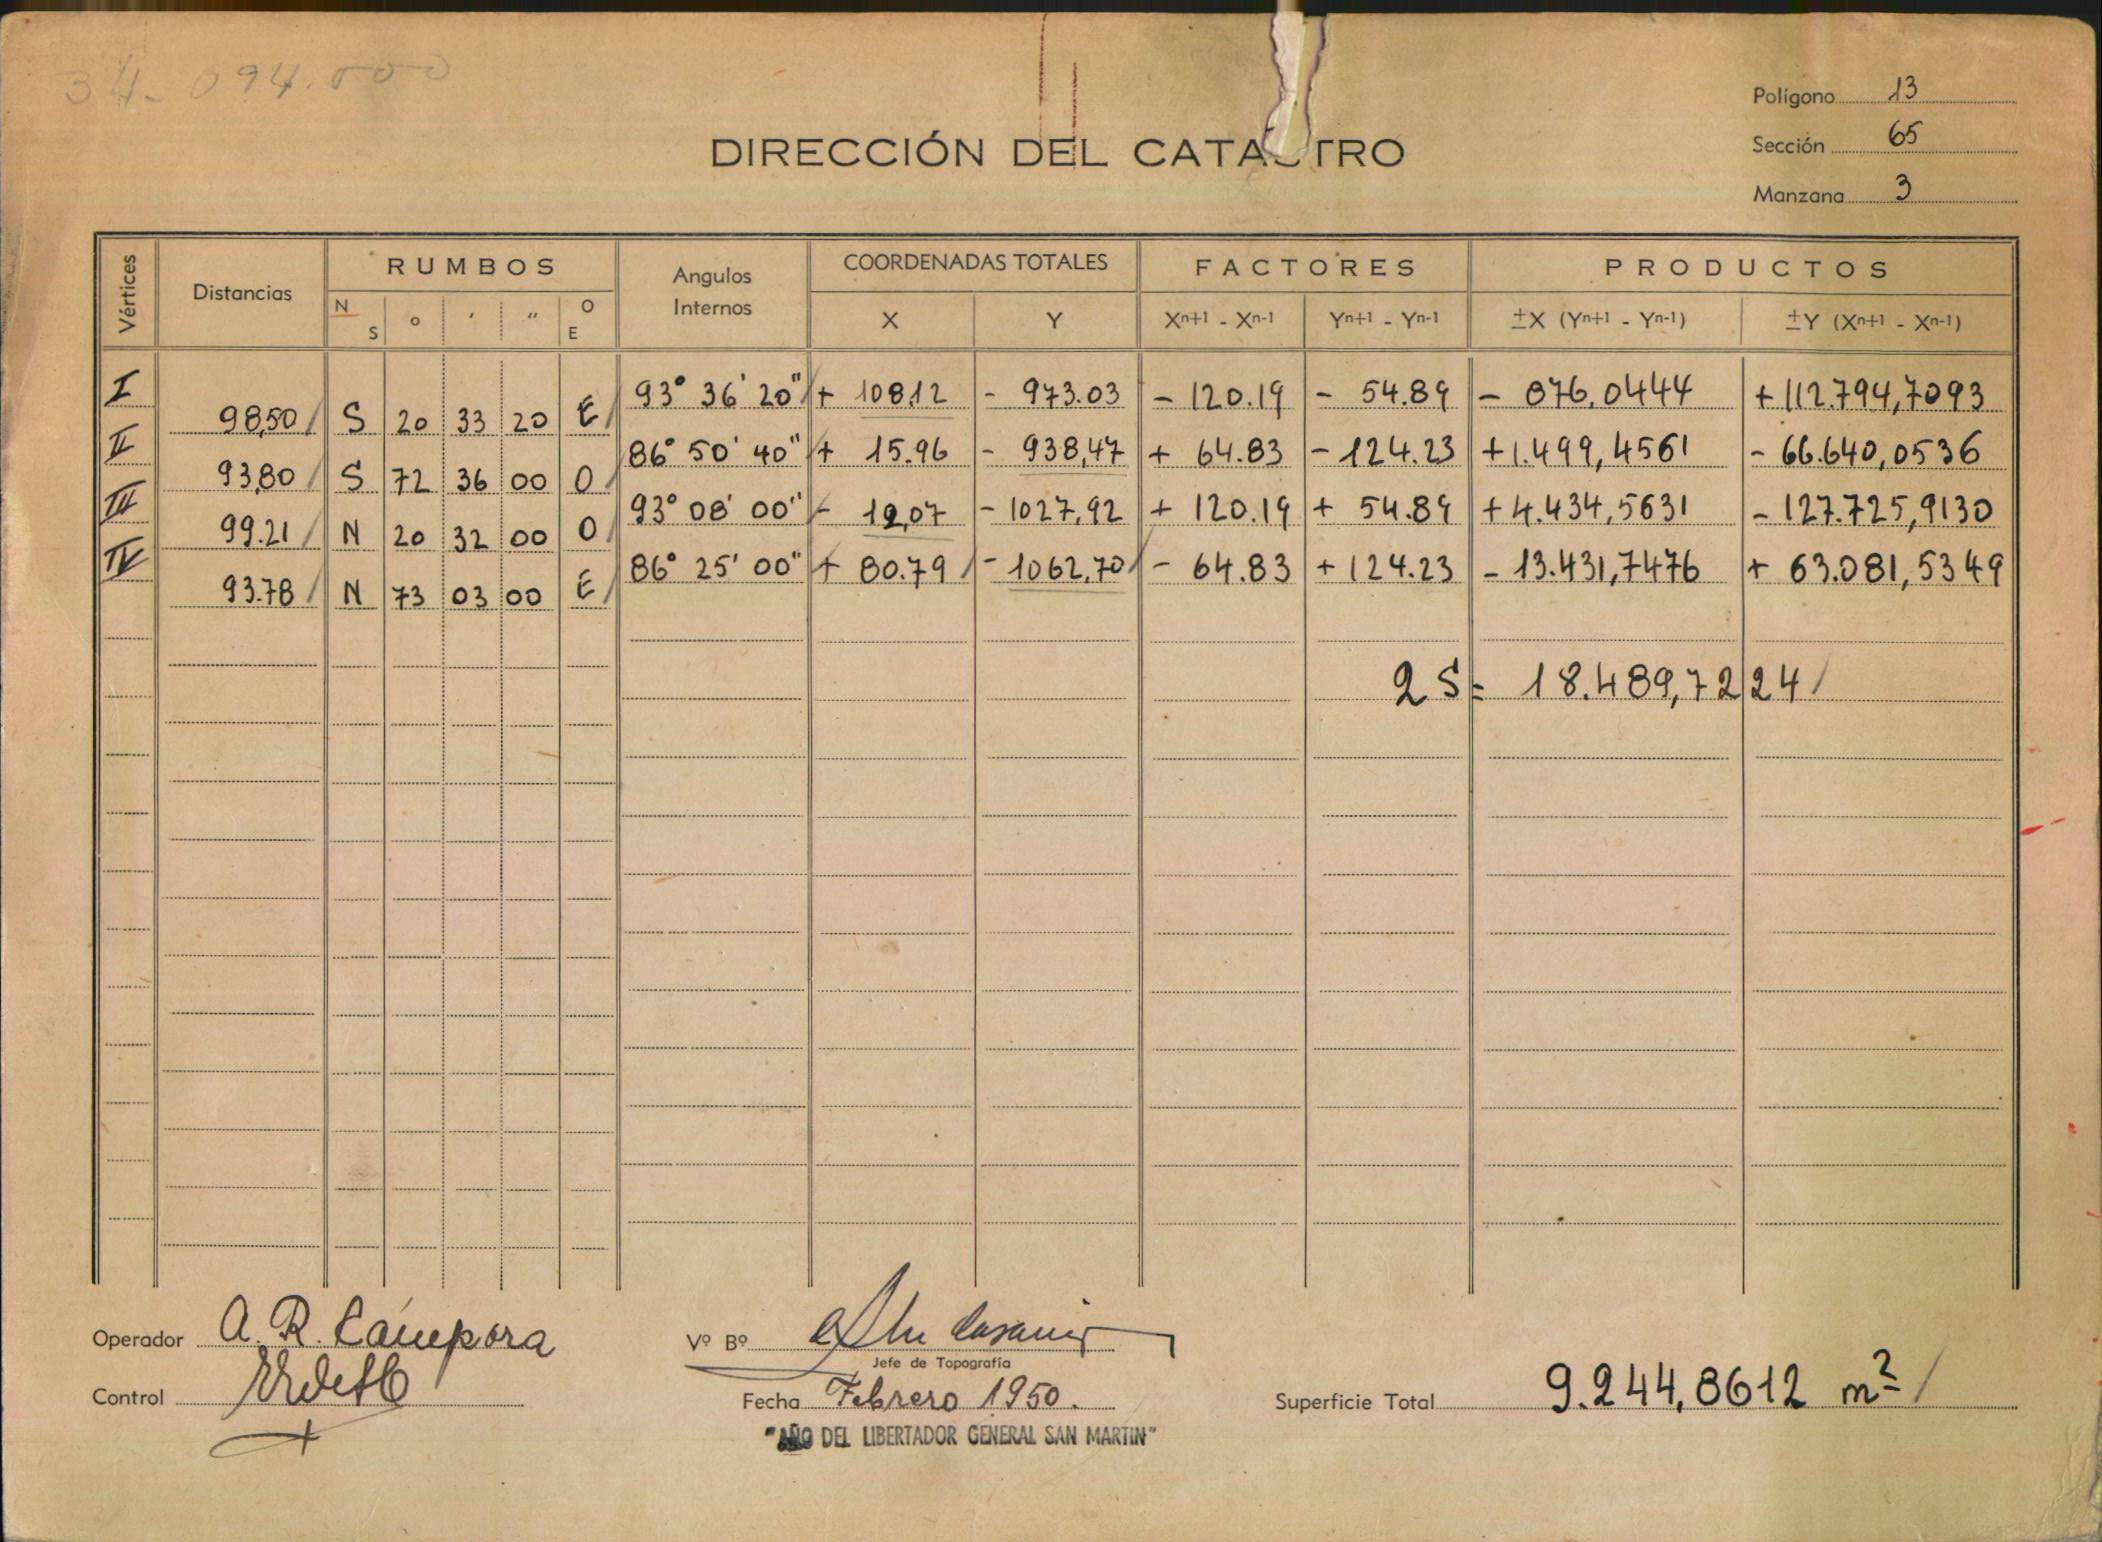 34-094.000
Polígono 13
Sección 65
Manzana 3
DIRECCIÓN DEL CATASTRO
Vértices Distancias RUMBOS Angulos Internos COORDENADAS TOTALES FACTORES PRODUCTOS
N S ° ' " O E X Y Xⁿ⁺¹ - Xⁿ⁻¹ Yⁿ⁺¹ - Yⁿ⁻¹ ±X (Yⁿ⁺¹ - Yⁿ⁻¹) ±Y (Xⁿ⁺¹ - Xⁿ⁻¹)
I 93° 36' 20" + 108,12 - 973.03 - 120.19 - 54.89 - 876,0444 + 112.794,7093
98,50 S 20 33 20 E
II 86° 50' 40" + 15.96 - 938,47 + 64.83 - 124.23 + 1.499,4561 - 66.640,0536
93,80 S 72 36 00 O
III 93° 08' 00" - 12,07 - 1027,92 + 120.19 + 54.89 + 4.434,5631 - 127.725,9130
99.21 N 20 32 00 O
IV 86° 25' 00" + 80.79 - 1062,70 - 64.83 + 124.23 - 13.431,7476 + 63.081,5349
93.78 N 73 03 00 E
2 S = 18.489,7224
Operador A. R. Cámpora
Vº Bº
Jefe de Topografía
Control
Fecha Febrero 1950.
Superficie Total 9.244,8612 m²
"AÑO DEL LIBERTADOR GENERAL SAN MARTIN"